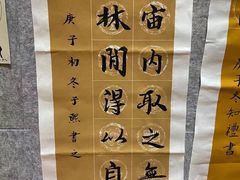 宙内取之無
林間得以自
庚子初冬于熙書之
庚子冬知禮書